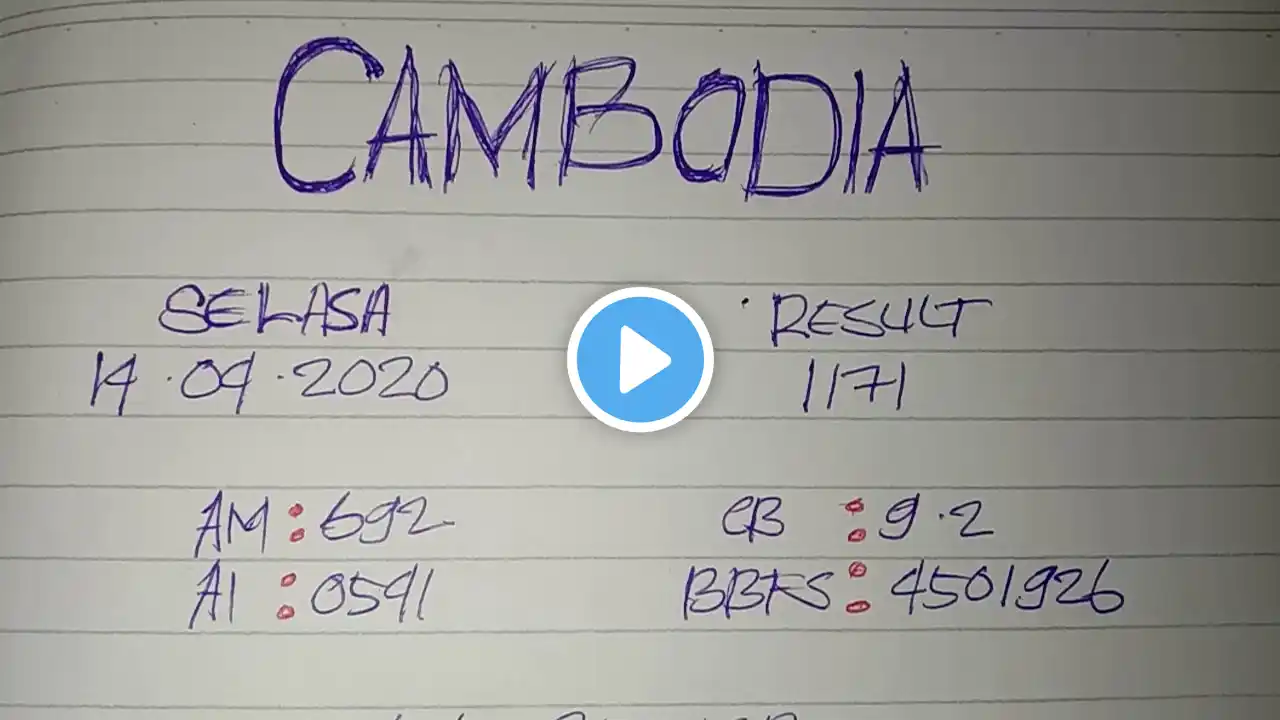 CAMBODIA
SELASA
14.04.2020
RESULT
1171
AM : 692
AI : 0541
CB : 9.2
BBFS : 4501926